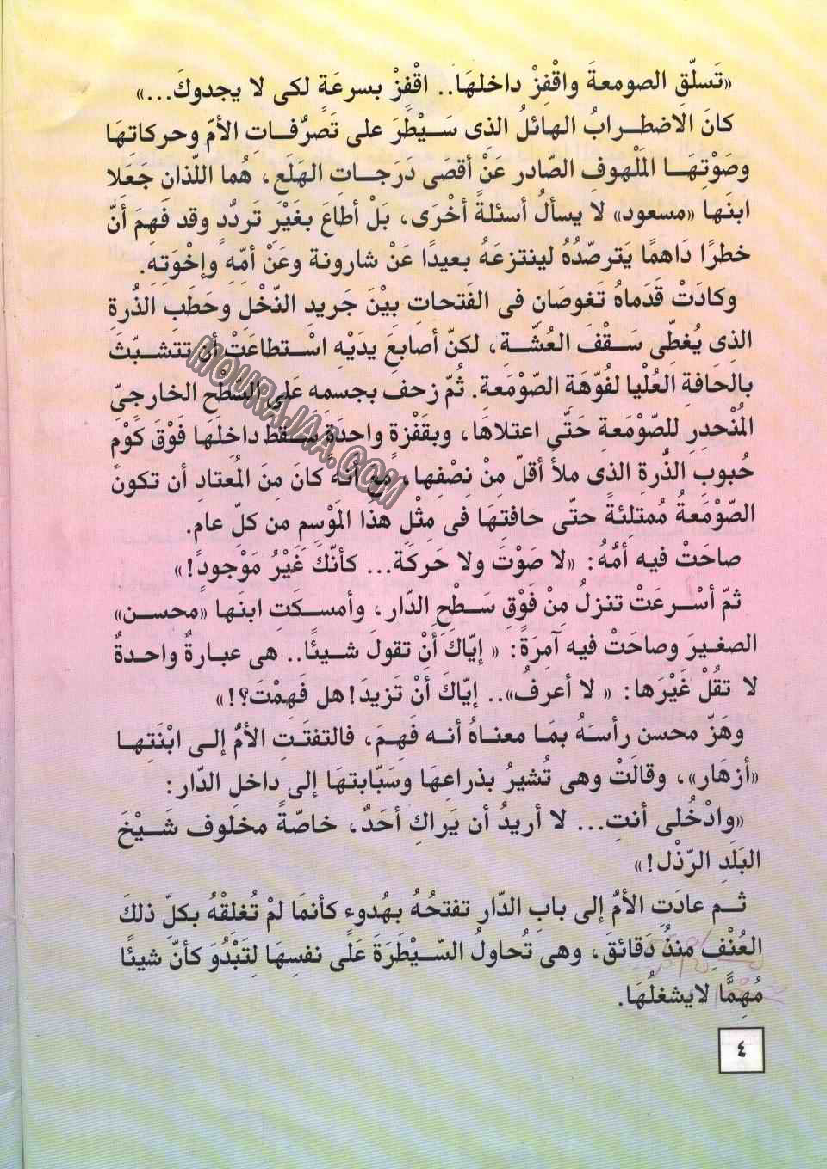 «تَسلّقِ الصومعةَ واقْفِزْ داخلهَا.. اقْفِزْ بسرعَةٍ لكى لا يجدوكَ...»
كانَ الاضطرابُ الهائلُ الذى سَيْطَرَ على تَصرُّفاتِ الأمّ وحركاتهَا
وصَوْتِهَا المَلْهوفِ الصّادر عَنْ أقصَى دَرَجاتِ الهَلَعِ، هُما اللّذانِ جَعَلا
ابنَها «مسعود» لا يسألُ أسئلةً أخْرَى، بَلْ أطاعَ بغَيْرَ تَردُّدٍ وقد فَهِمَ أنّ
خطرًا دَاهمًا يَترصّدُهُ لينتزعَهُ بعيدًا عَنْ شارونة وعَنْ أمّهِ وإخْوَتِهِ.
وكادَتْ قدَماهُ تَغوصَانِ فى الفَتحاتِ بيْنَ جَريدِ النّخْلِ وحطَبِ الذُرةِ
الذِى يُغطّى سَقْفَ العُشّةِ، لكنّ أصابعَ يدَيْهِ اسْتطاعَتْ أن تتشبّثَ
بالحَافةِ العُلْيا لفُوّهَة الصّوْمَعَةِ. ثُمّ زحف بجسمه عَلَى السَّطحِ الخارجِىّ
المُنْحدِرِ للصّومَعةِ حَتّى اعتلاهَا، وبقَفْزةٍ واحدةٍ سَقطَ داخِلَها فَوْقَ كَوْمِ
حُبوبِ الذُّرةِ الذى ملأ أقلّ مِنْ نِصْفِها، مع أنّه كانَ مِنَ المُعتادِ أن تكونَ
الصّوْمَعَةُ مُمتلِئةً حتّى حافتِهَا فى مِثْلِ هذا المَوْسِمِ من كلّ عامٍ.
صاحَتْ فيه أمُّهُ: «لا صَوْتَ ولا حَركَةَ... كأنّكَ غَيْرُ مَوْجودٍ!»
ثمّ أسْرعَتْ تنزلُ مِنْ فَوْقِ سَطْحِ الدّارِ، وأمسكَتِ ابنَها «محسن»
الصغيرَ وصاحَتْ فيه آمِرَةً: « إيّاكَ أنْ تقولَ شيئًا.. هى عبارةٌ واحدةٌ
لا تقُلْ غَيْرَها: « لا أعرفُ».. إيّاكَ أنْ تَزيدَ! هل فَهِمْتَ؟!»
وهَزّ محسن رأسَهُ بمَا معناهُ أنه فَهِمَ، فالتفتَتِ الأمُّ إلى ابْنَتِها
«أزهار»، وقالَتْ وهى تُشيرُ بذراعِهَا وسَبّابتهَا إلى داخلِ الدّار:
«وادْخُلى أنتِ... لا أريدُ أن يَراكِ أحَدٌ، خاصّةً مخلوف شَيْخَ
البَلَدِ الرّذْل!»
ثم عادَت الأمُّ إلى بابِ الدّارِ تفتحُهُ بهُدوء كأنمَا لَمْ تُغلِقْهُ بكلّ ذلكَ
العُنْفِ منذُ دَقائقَ، وهى تُحاولُ السّيْطَرَةَ عَلَى نفسِهَا لِتَبْدُوَ كأنّ شيئًا
مُهِمًّا لايشغلُهَا.
٤
HOURAJAA.COM